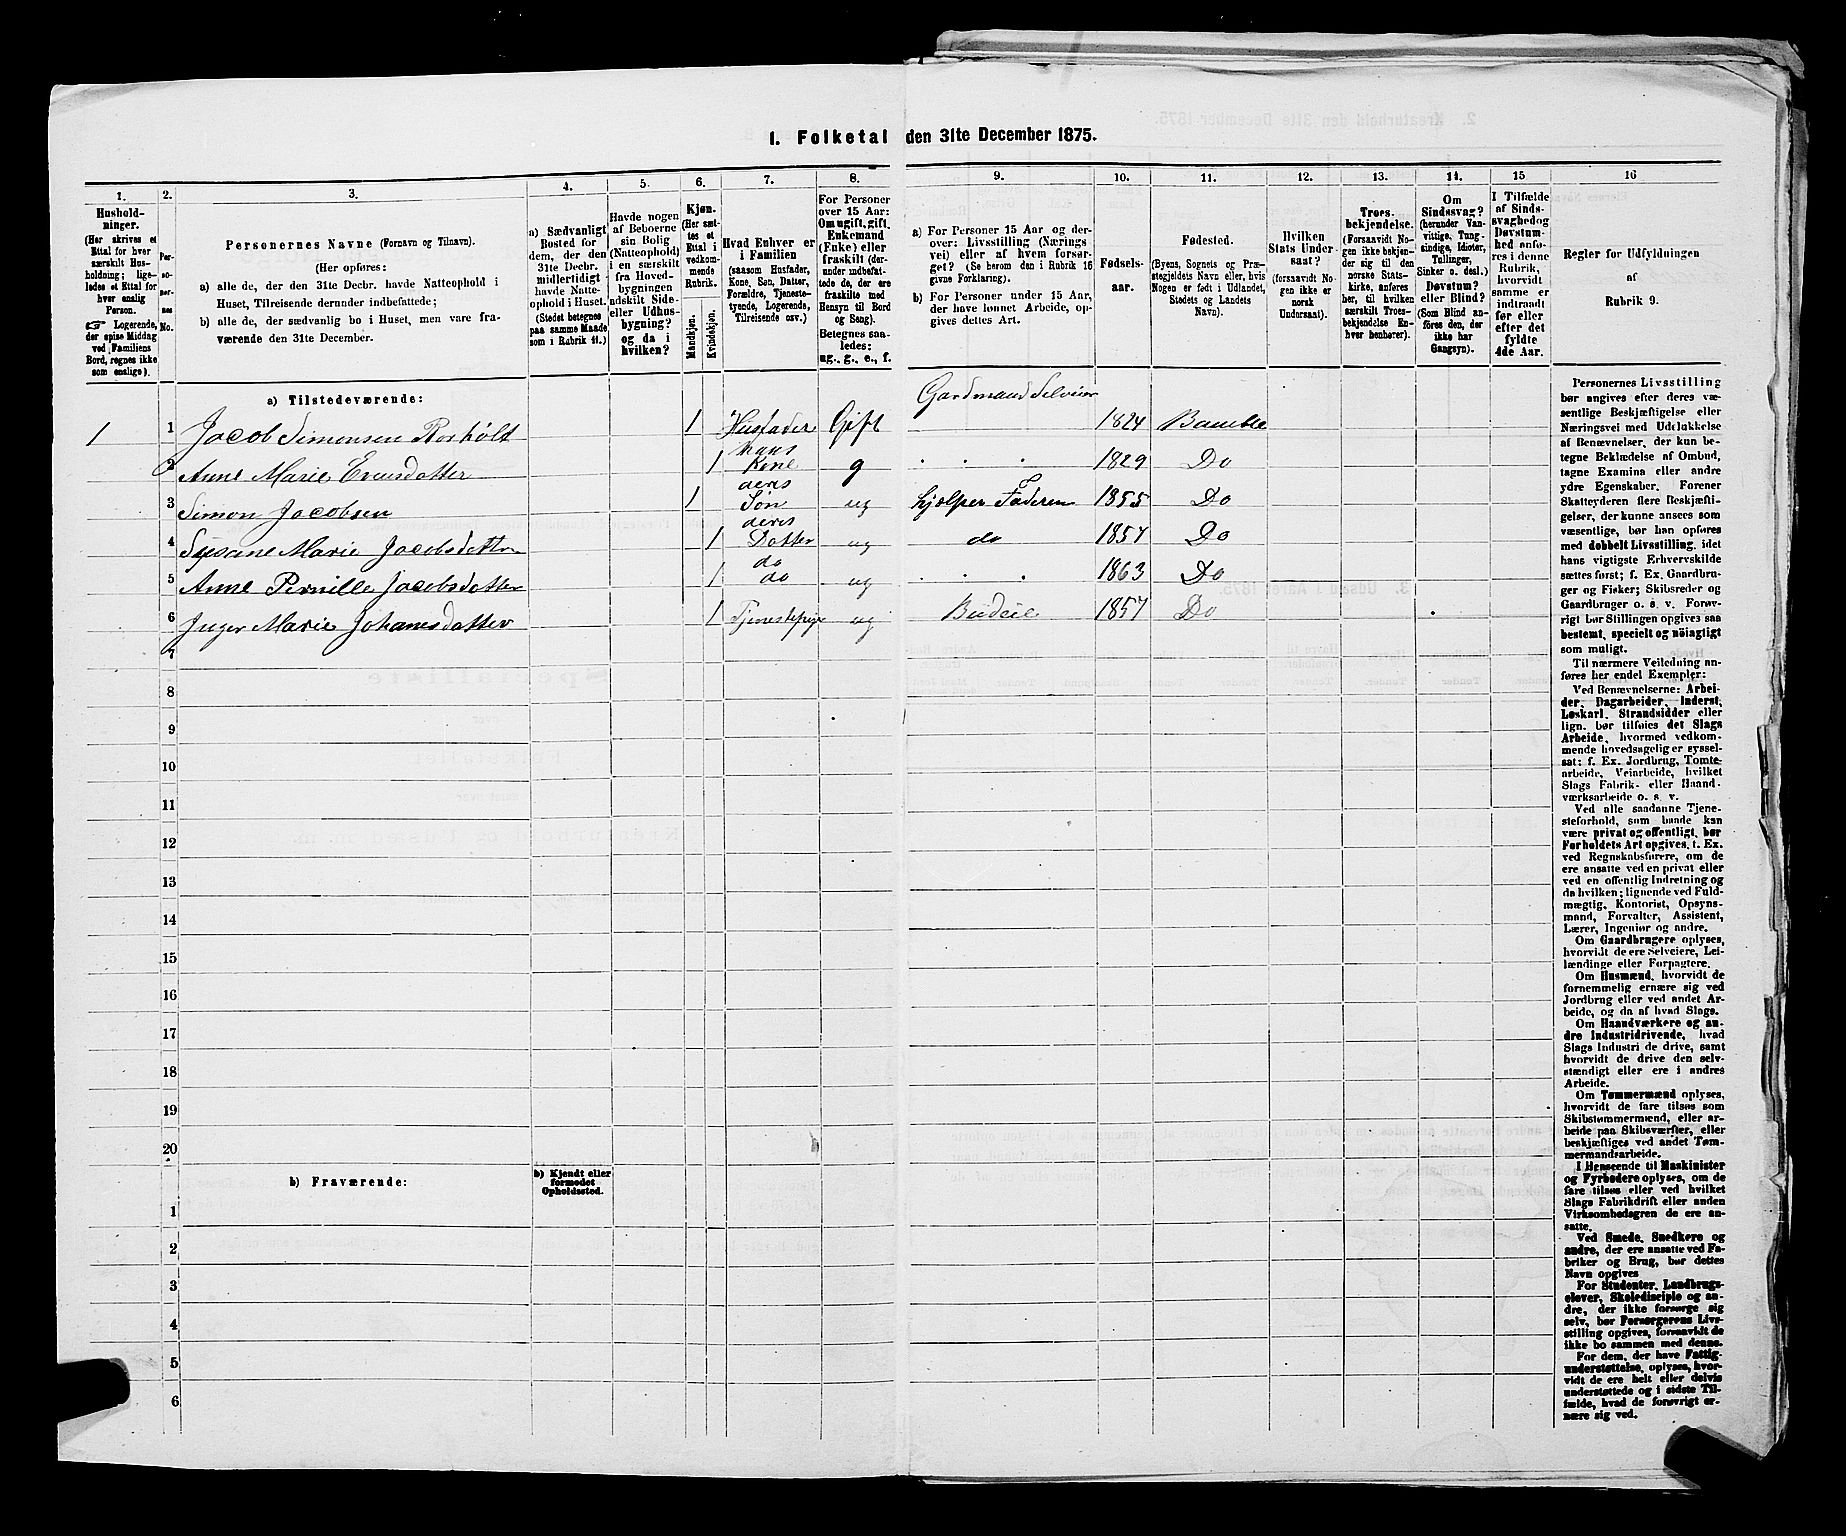 1. Folketal den 31te December 1875.
1. 2. 3. 4. 5. 6. 7. 8. 9. 10. 11. 12. 13. 14. 15 16
Hushold-
ninger.
(Her skrives et
Ettal for hver
særskilt Hus-
holdning; lige-
ledes et Ettal for
hver enslig
Person.
☞ Logerende,
der spise Middag
ved Familiens
Bord, regnes ikke
som enslige).
Per-
so-
ner-
nes
No.
Personernes Navne (Fornavn og Tilnavn).
(Her opføres:
a) alle de, der den 31te Decbr. havde Natteophold i
Huset, Tilreisende derunder indbefattede;
b) alle de, der sædvanlig bo i Huset, men vare fra-
værende den 31te December.
a) Sædvanligt
Bosted for
dem, der den
31te Decbr.
midlertidigt
havde Natte-
ophold i Huset.
(Stedet betegnes
paa samme Maade
som i Rubrik 11.)
Havde nogen
af Beboerne
sin Bolig
(Natteophold)
i en særskilt
fra Hoved-
bygningen
adskilt Side-
eller Udhus-
bygning?
og da i
hvilken?
Kjøn.
(Her sæt-
tes et
Ettal i
vedkom-
mende
Rubrik.
Mandkjøn.
Kvindekjøn.
Hvad Enhver er
i Familien
(saasom Husfader,
Kone, Søn, Datter,
Forældre, Tjeneste-
tyende, Logerende,
Tilreisende osv.)
For Personer
over 15 Aar:
Om ugift, gift,
Enkemand
(Enke) eller
fraskilt (der-
under indbefat-
tede de, der ere
fraskilte med
Hensyn til Bord
og Seng).
Betegnes saa-
ledes:
ug., g., e., f.
a) For Personer 15 Aar og der-
over: Livsstilling (Nærings
vei) eller af hvem forsør-
get? (Se herom den i Rubrik 16
givne Forklaring).
b) For Personer under 15 Aar,
der have lønnet Arbeide, op-
gives dettes Art.
Fødsels-
aar.
Fødested.
(Byens, Sognets og Præ-
stegjeldets Navn eller, hvis
Nogen er født i Udlandet,
Stedets og Landets
Navn).
Hvilken
Stats Under-
saat?
(forsaavidt No-
gen ikke er
norsk
Undersaat).
Troes-
bekjendelse.
(Forsaavidt No-
gen ikke bekjen-
der sig til den
norske Stats-
kirke, anføres
her, til hvilken
særskilt Troes-
bekjendelse En-
hver henhører).
Om
Sindssvag?
(herunder Van-
vittige, Tung-
sindige, Idioter,
Tullinger,
Sinker o. desl.)
Døvstum?
eller Blind?
(Som Blind an-
føres den, der
ikke har
Gangsyn).
I Tilfælde
af Sinds-
svaghed og
Døvstum-
hed anfø-
res i denne
Rubrik,
hvorvidt
samme er
indtraadt
før eller
efter det
fyldte
4de Aar.
Regler for Udfyldningen
af
Rubrik 9.
a) Tilstedeværende:
Gardmand Selveier
1 1 Jacob Simonsen Rorholt 1 Husfader Gift 1824 Bamble
2 Anne Marie Evensdatter 1 hans Kone g . . . 1829 Do
3 Simon Jacobsen 1 deres Søn ug hjelper Faderen 1855 Do
4 Susane Marie Jacobsdatter 1 deres Datter ug do 1857 Do
5 Anne Pernille Jacobsdatter 1 do do ug . . . 1863 Do
6 Inger Marie Johanesdatter 1 Tjenestepige ug Budeie 1857 Do
7
8
9
10
11
12
13
14
15
16
17
18
19
20
b) Fraværende:
b) Kjendt eller
formodet
Opholdssted.
1
2
3
4
5
6
Personernes Livsstilling
bør angives efter deres væ-
sentlige Beskjæftigelse eller
Næringsvei med Udelukkelse
af Benævnelser, der kun be-
tegne Beklædelse af Ombud,
tagne Examina eller andre
ydre Egenskaber. Forener
Skatteyderen flere Beskjæfti-
gelser, der kunne ansees som
væsentlige, bør han opføres
med dobbelt Livsstilling, idet
hans vigtigste Erhvervskilde
sættes først; f. Ex. Gaardbru-
ger og Fisker; Skibsreder og
Gaardbruger o. s. v. Forøv-
rigt bør Stillingen opgives saa
bestemt, specielt og nøiagtigt
som muligt.
Til nærmere Veiledning an-
føres her endel Exempler:
Ved Benævnelserne: Arbei-
der, Dagarbeider, Inderst,
Løskarl, Strandsidder eller
lign. bør tilføies det Slags
Arbeide, hvormed vedkom-
mende hovedsagelig er syssel-
sat; f. Ex. Jordbrug, Tomte-
arbeide, Veiarbeide, hvilket
Slags Fabrik- eller Haand-
værksarbeide o. s. v.
Ved alle saadanne Tjene-
steforhold, som baade kan
være privat og offentligt, bør
Forholdets Art opgives, f. Ex.
ved Regnskabsførere, om de
ere ansatte ved en privat eller
ved en offentlig Indretning og
da hvilken; lignende ved Fuld-
mægtig, Kontorist, Opsyns-
mand, Forvalter, Assistent,
Lærer, Ingeniør og andre.
Om Gaardbrugere oplyses,
hvorvidt de ere Selveiere, Lei-
lændinge eller Forpagtere.
Om Husmænd, hvorvidt de
fornemmelig ernære sig ved
Jordbrug eller ved andet Ar-
beide, og da af hvad Slags.
Om Haandværkere og an-
dre Industridrivende, hvad
Slags Industri de drive, samt
hvorvidt de drive den selv-
stændigt eller ere i andres
Arbeide.
Om Tømmermænd oplyses,
hvorvidt de fare tilsøs som
Skibstømmermænd, eller ar-
beide paa Skibsværfter, eller
beskjæftiges ved andet Tøm-
mermandsarbeide.
I Henseende til Maskinister
og Fyrbødere oplyses, om de
fare tilsøs eller ved hvilket
Slags Fabrikdrift eller anden
Virksomhedsgren de ere an-
satte.
Ved Smede, Snedkere og
andre, der ere ansatte ved Fa-
briker og Brug, bør dettes
Navn opgives
For Studenter, Landbrugs-
elever, Skoledisciple og an-
dre, der ikke forsørge sig
selv, bør Forsørgerens Livs-
stilling opgives, forsaavidt de
ikke bo sammen med denne.
For dem, der have Fattig-
understøttelse, oplyses, hvor-
vidt de ere helt eller delvis
understøttede og i sidste Til-
fælde, hvad de forøvrigt er-
nære sig ved.